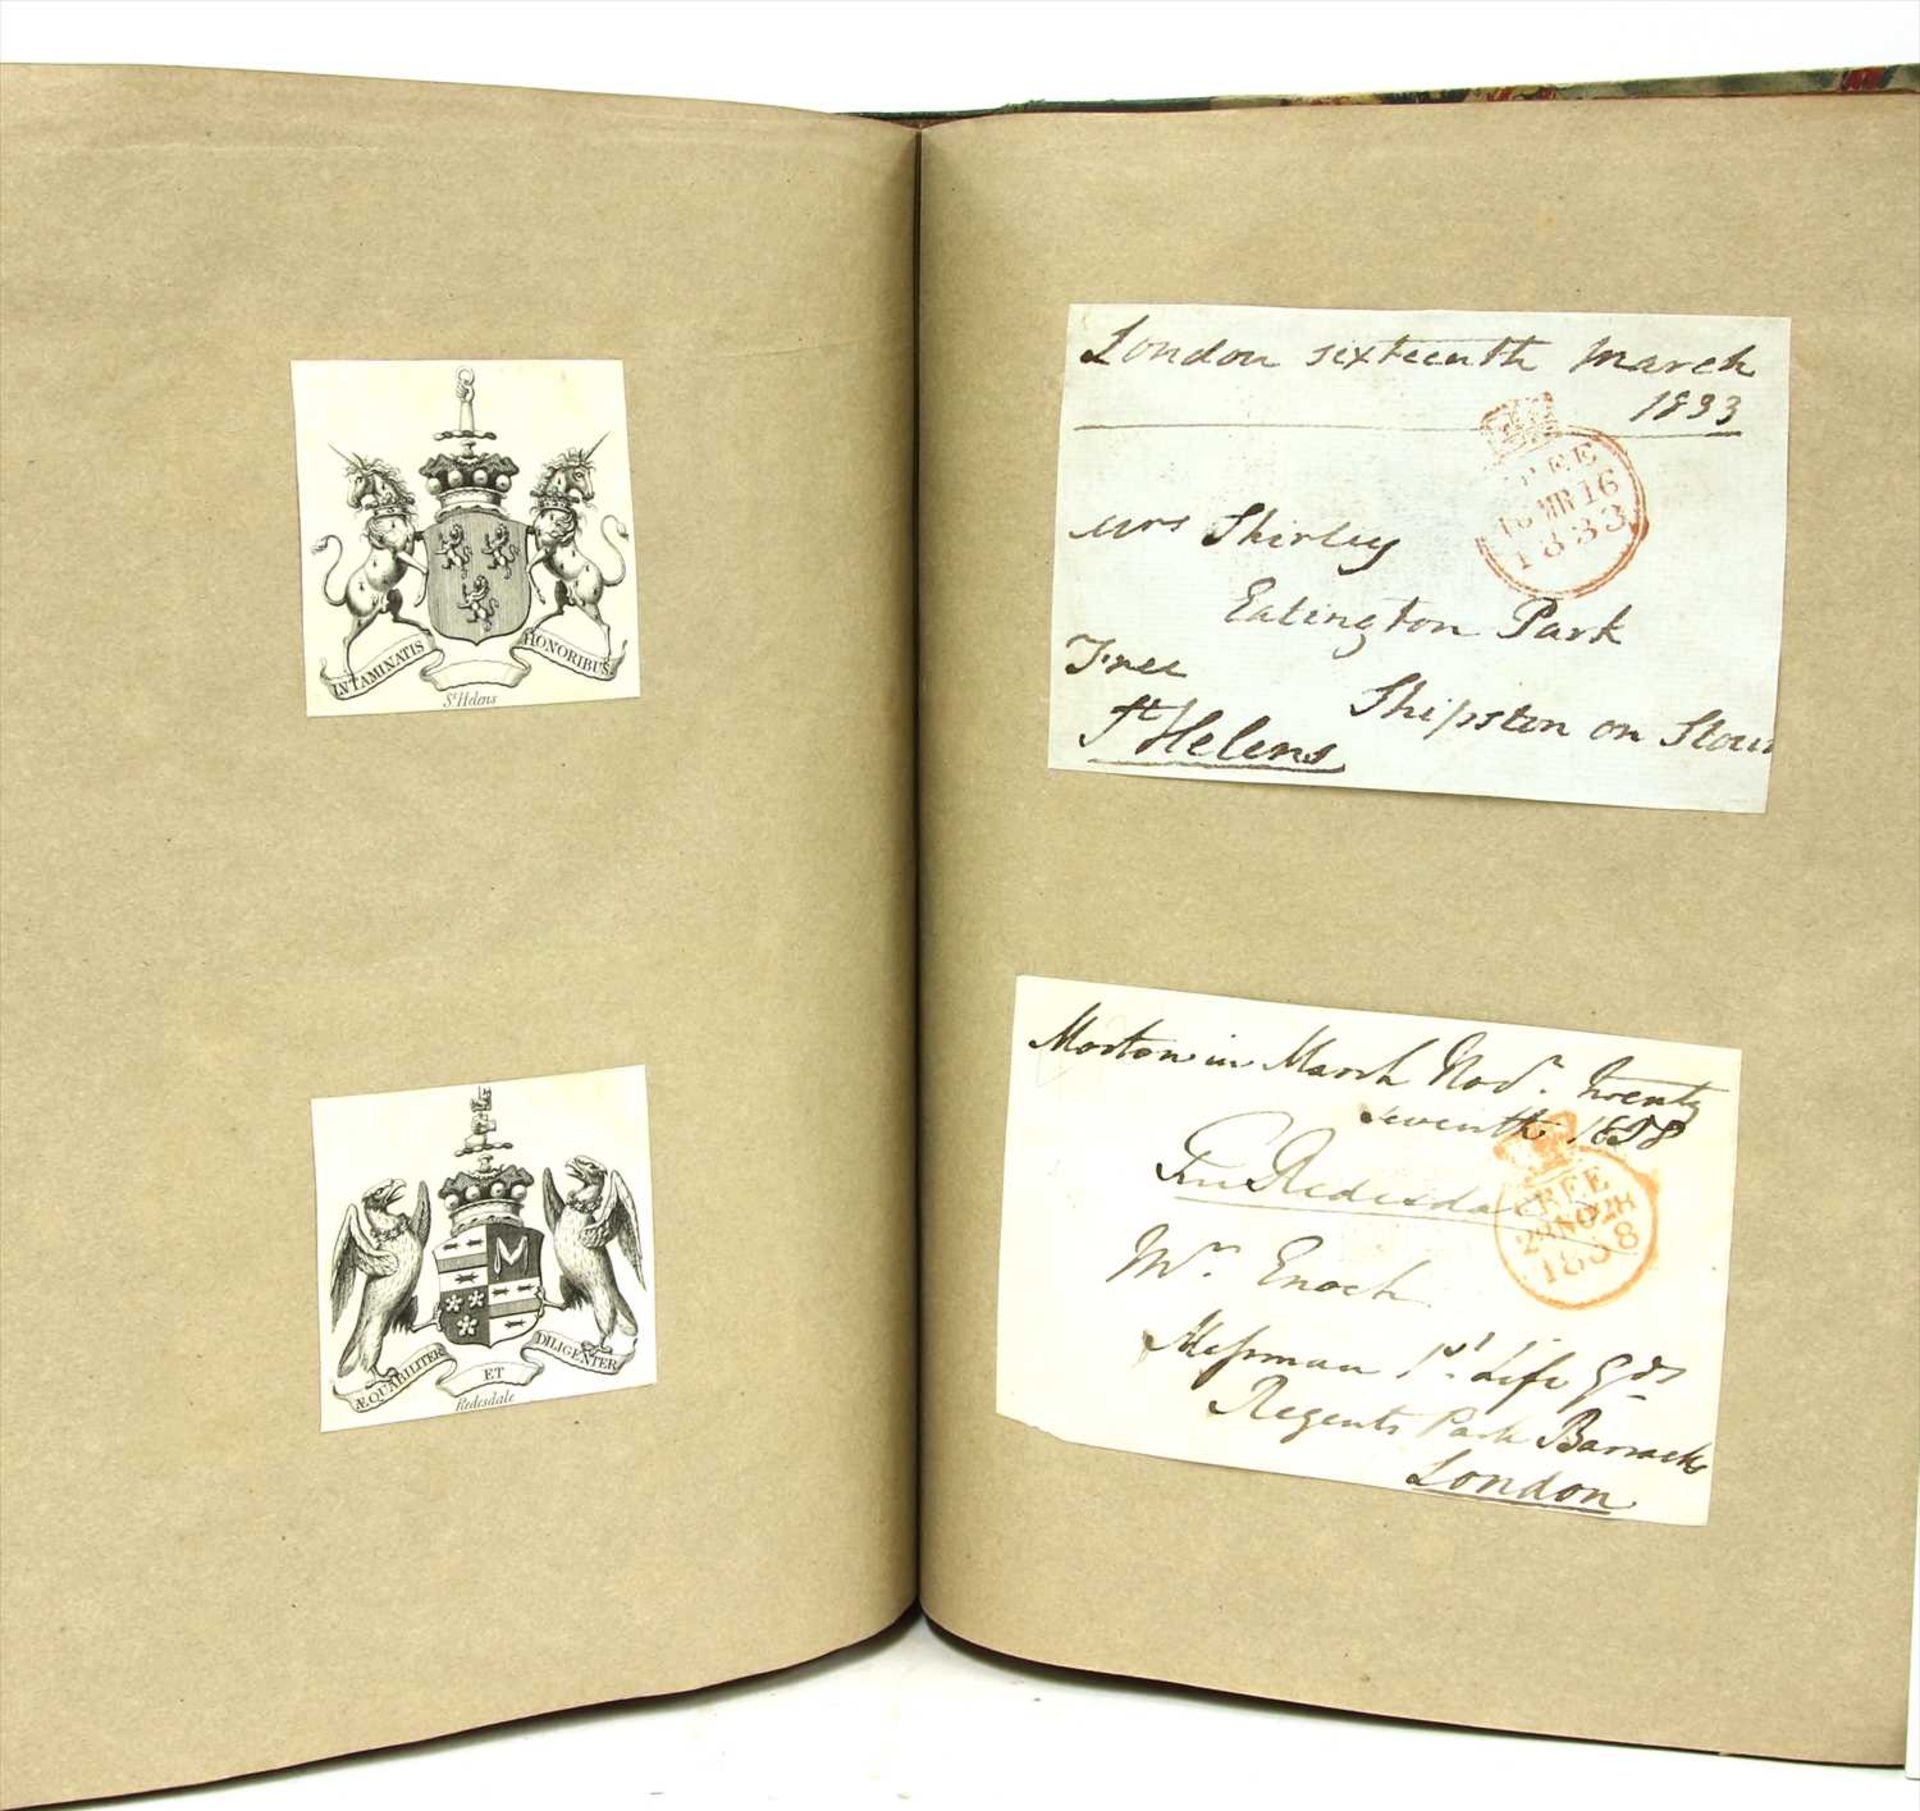 INTAMINATIS HONORIBUS.
St Helens
ÆQUABILITER ET DILIGENTER
Redesdale
London sixteenth March
1833
FREE
16 MR 16
1833
Mrs Shirley
Eatington Park
Free
Shipston on Stour
St Helens
Morton in March Novr. twenty
seventh 1838
Free Redesdale
FREE
28 NO 28
1838
Mr. Enoch
Messman 1st. Life Gds
Regents Park Barracks
London